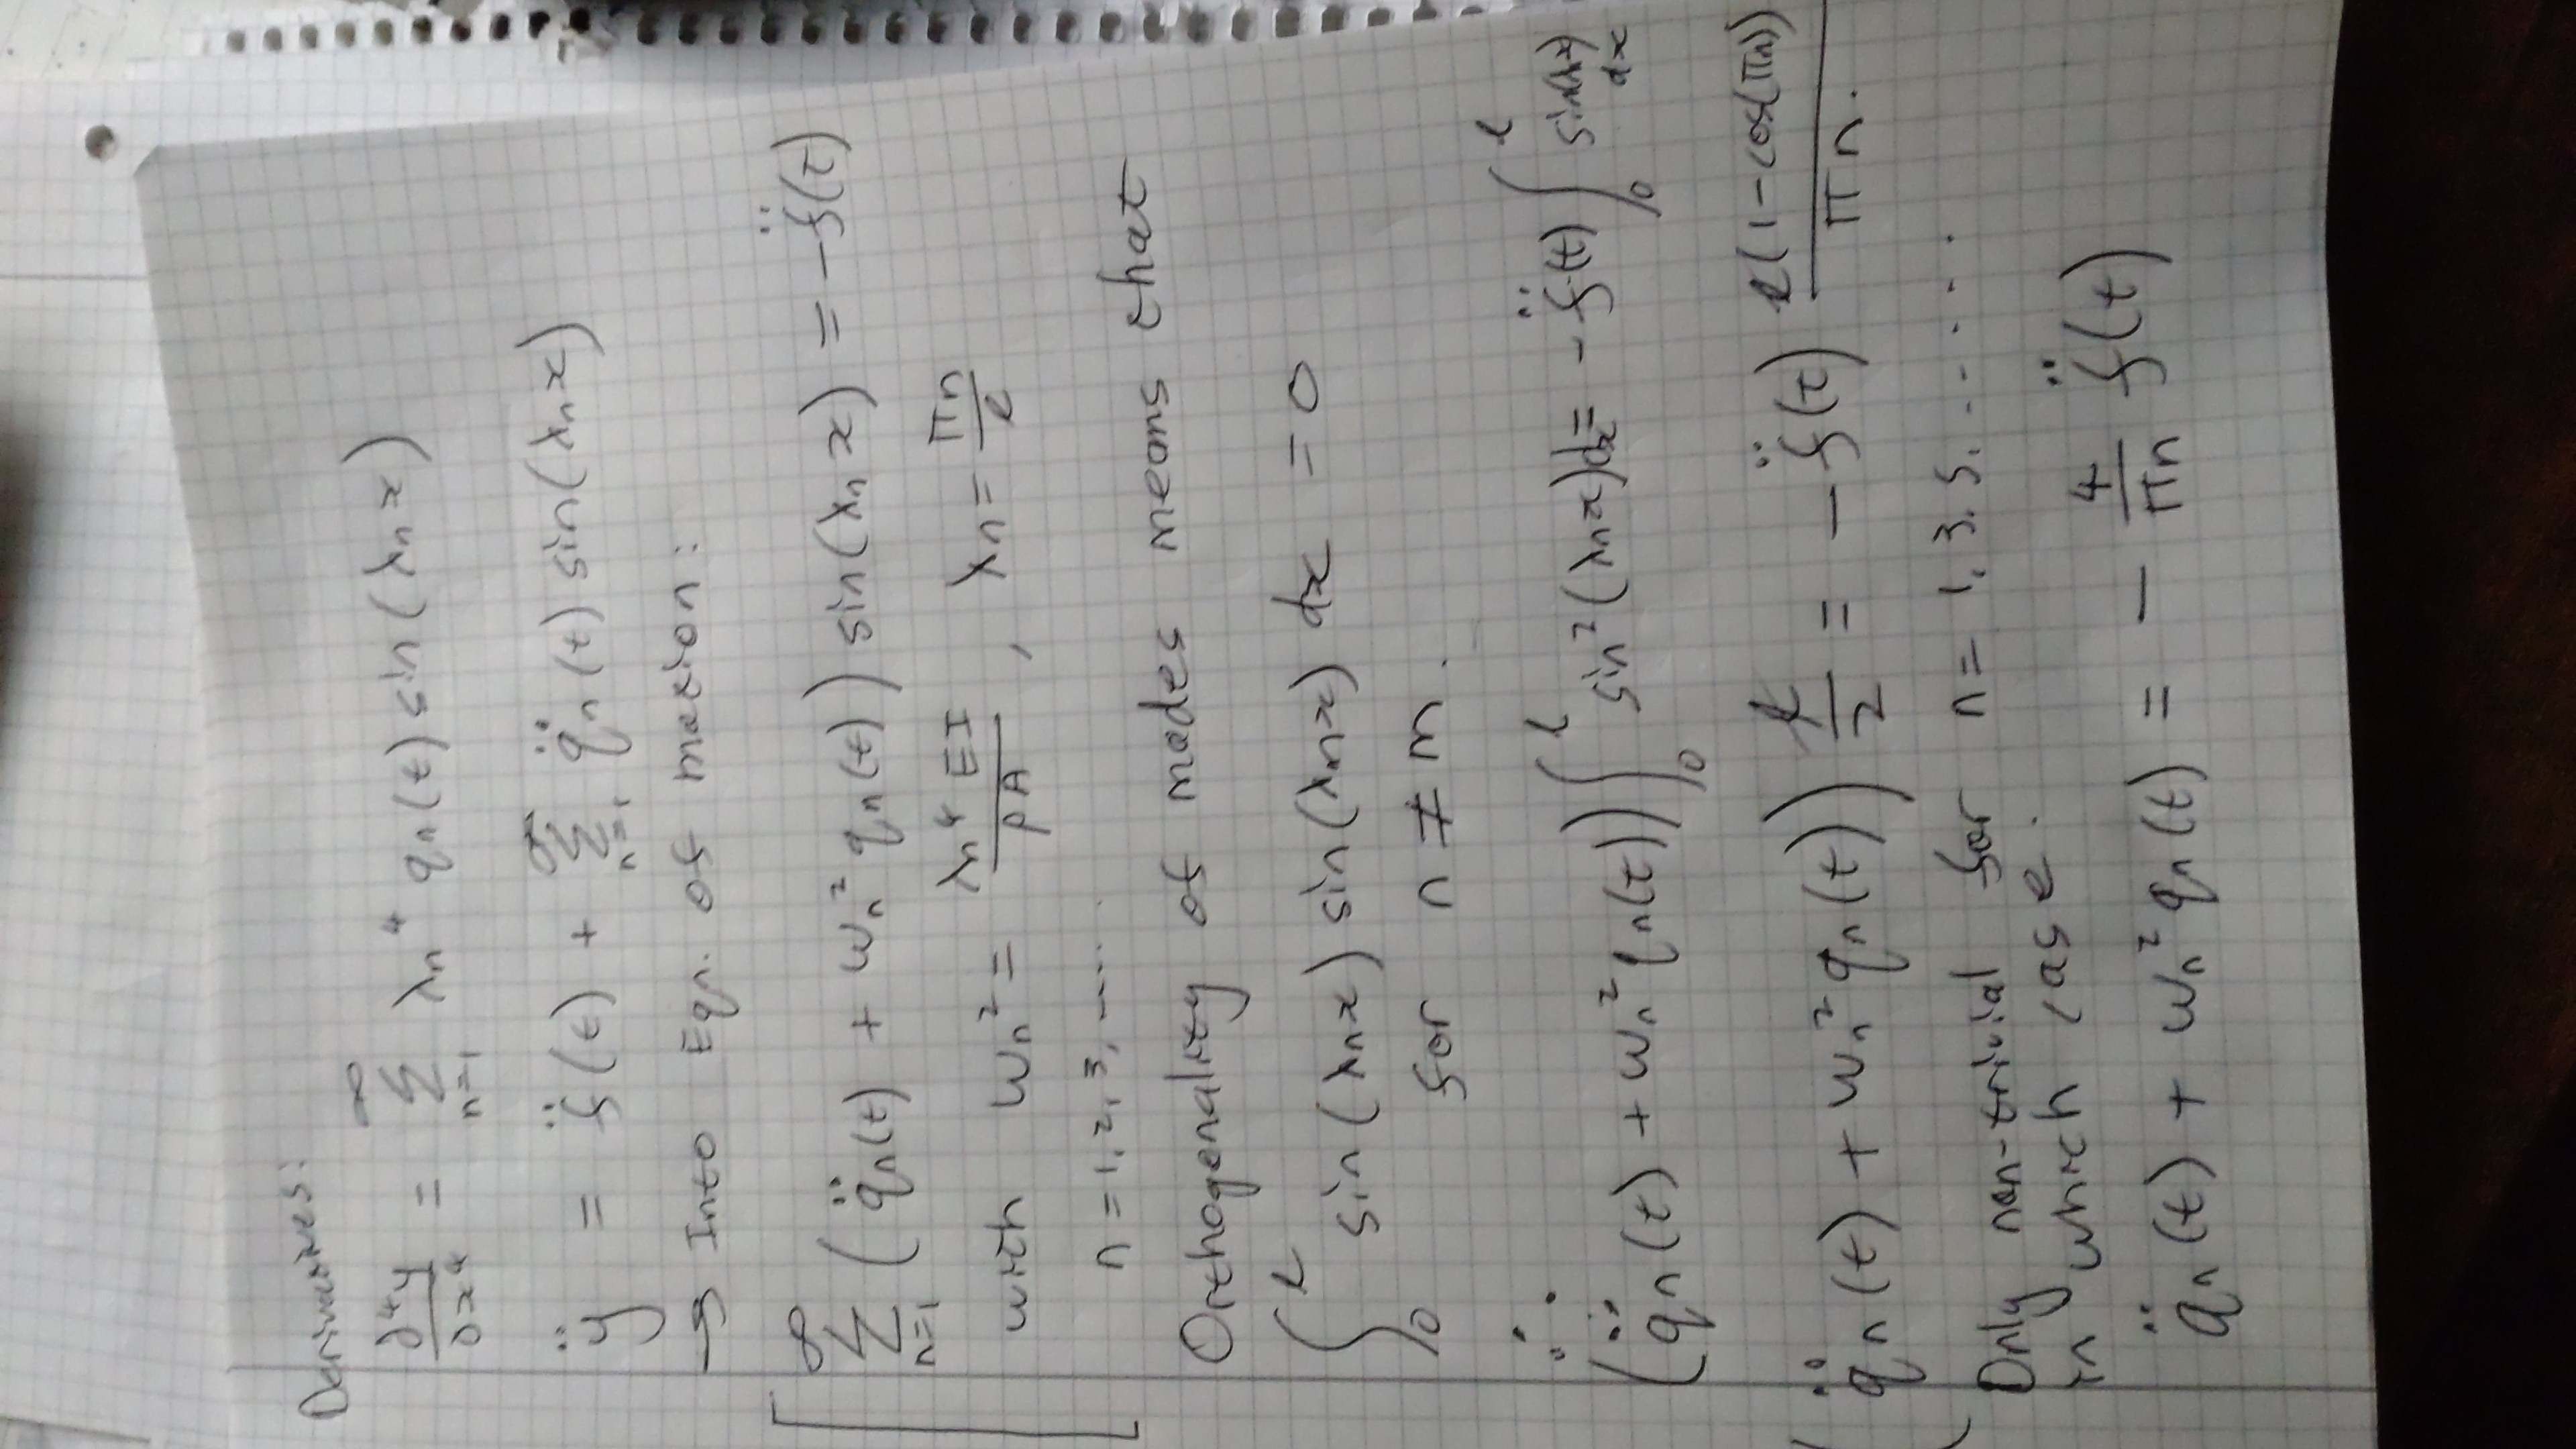 Derivatives:
∂⁴y/∂x⁴ = ∑_{n=1}^{∞} λn⁴ qn(t) sin(λn x)
ÿ = f̈(t) + ∑_{n=1}^{∞} q̈n(t) sin(λn x)
→ Into Eqn. of motion:
∑_{n=1}^{∞} (q̈n(t) + ωn² qn(t)) sin(λn x) = -f̈(t)
with ωn² = λn⁴ EI / ρA , λn = πn/l
n = 1, 2, 3, .....
Orthogonality of modes means that
∫₀^l sin(λn x) sin(λm x) dx = 0
for n ≠ m.
∴
(q̈n(t) + ωn² qn(t)) ∫₀^l sin²(λn x) dx = -f̈(t) ∫₀^l sin(λn x) dx
(q̈n(t) + ωn² qn(t)) l/2 = -f̈(t) l(1-cos(πn))/πn.
Only non-trivial for n = 1, 3, 5, ......
in which case.
q̈n(t) + ωn² qn(t) = - 4/πn f̈(t)